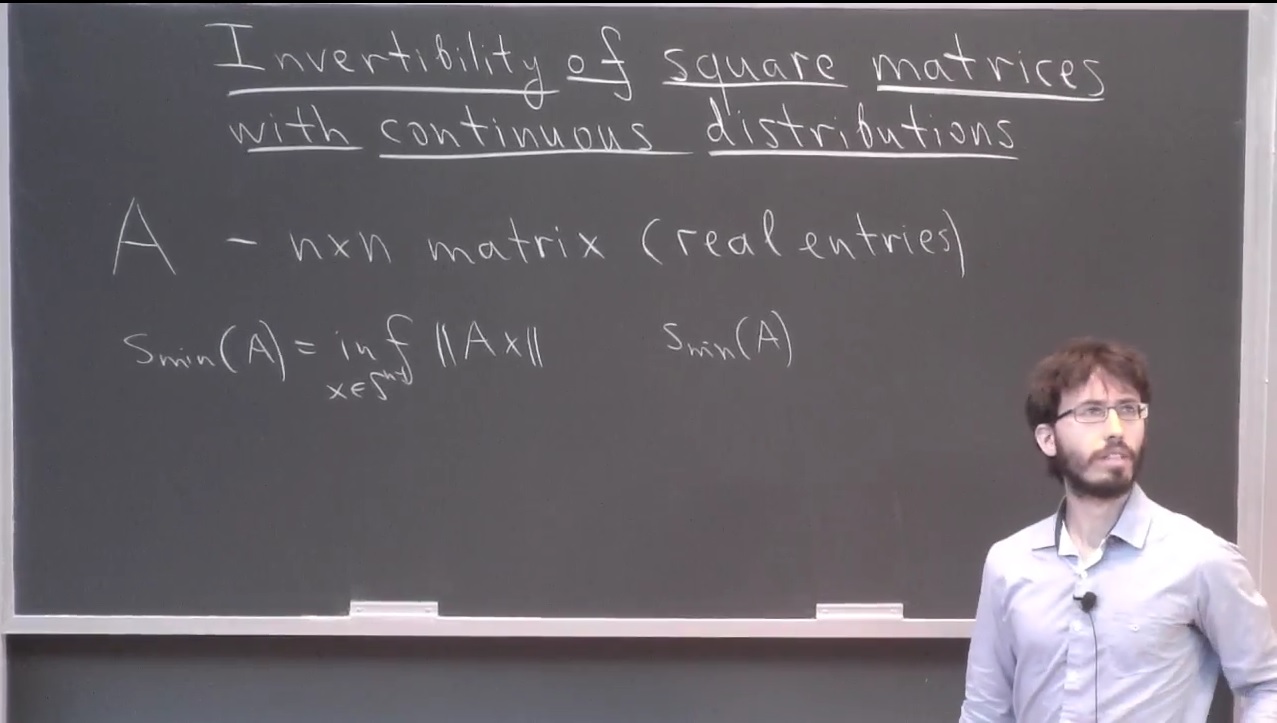 Invertibility of square matrices
with continuous distributions
A - n×n matrix (real entries)
Smin(A) = inf ‖Ax‖ Smin(A)
x∈Sⁿ⁻¹